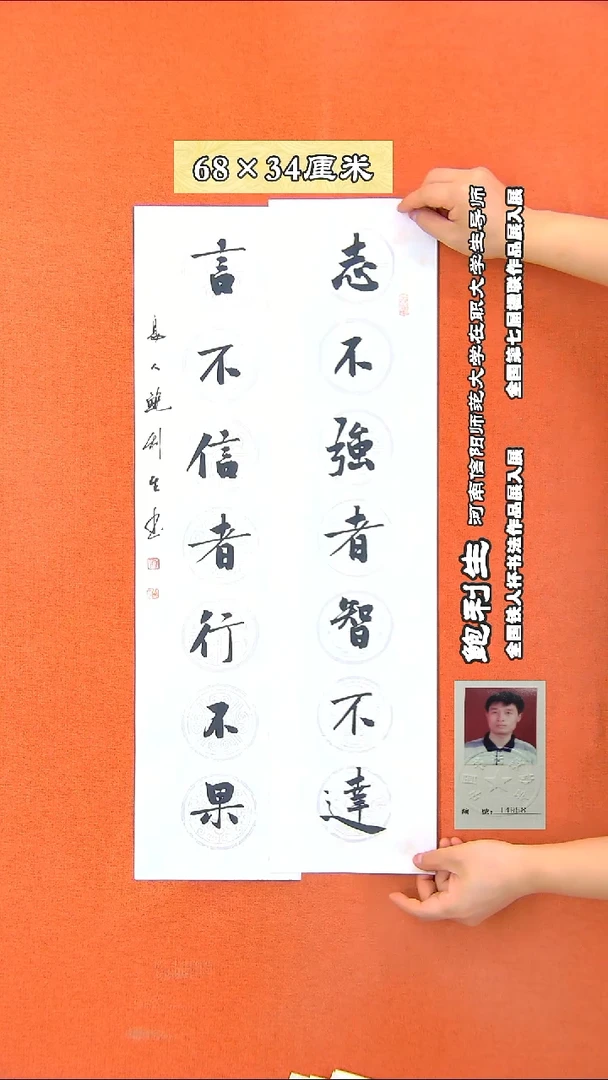 68×34厘米
志不強者智不達
言不信者行不果
息人鲍利生书
鲍利生 河南信阳师范大学在职大学生导师
全国铁人杯书法作品展入展 全国第七届楹联作品展入展